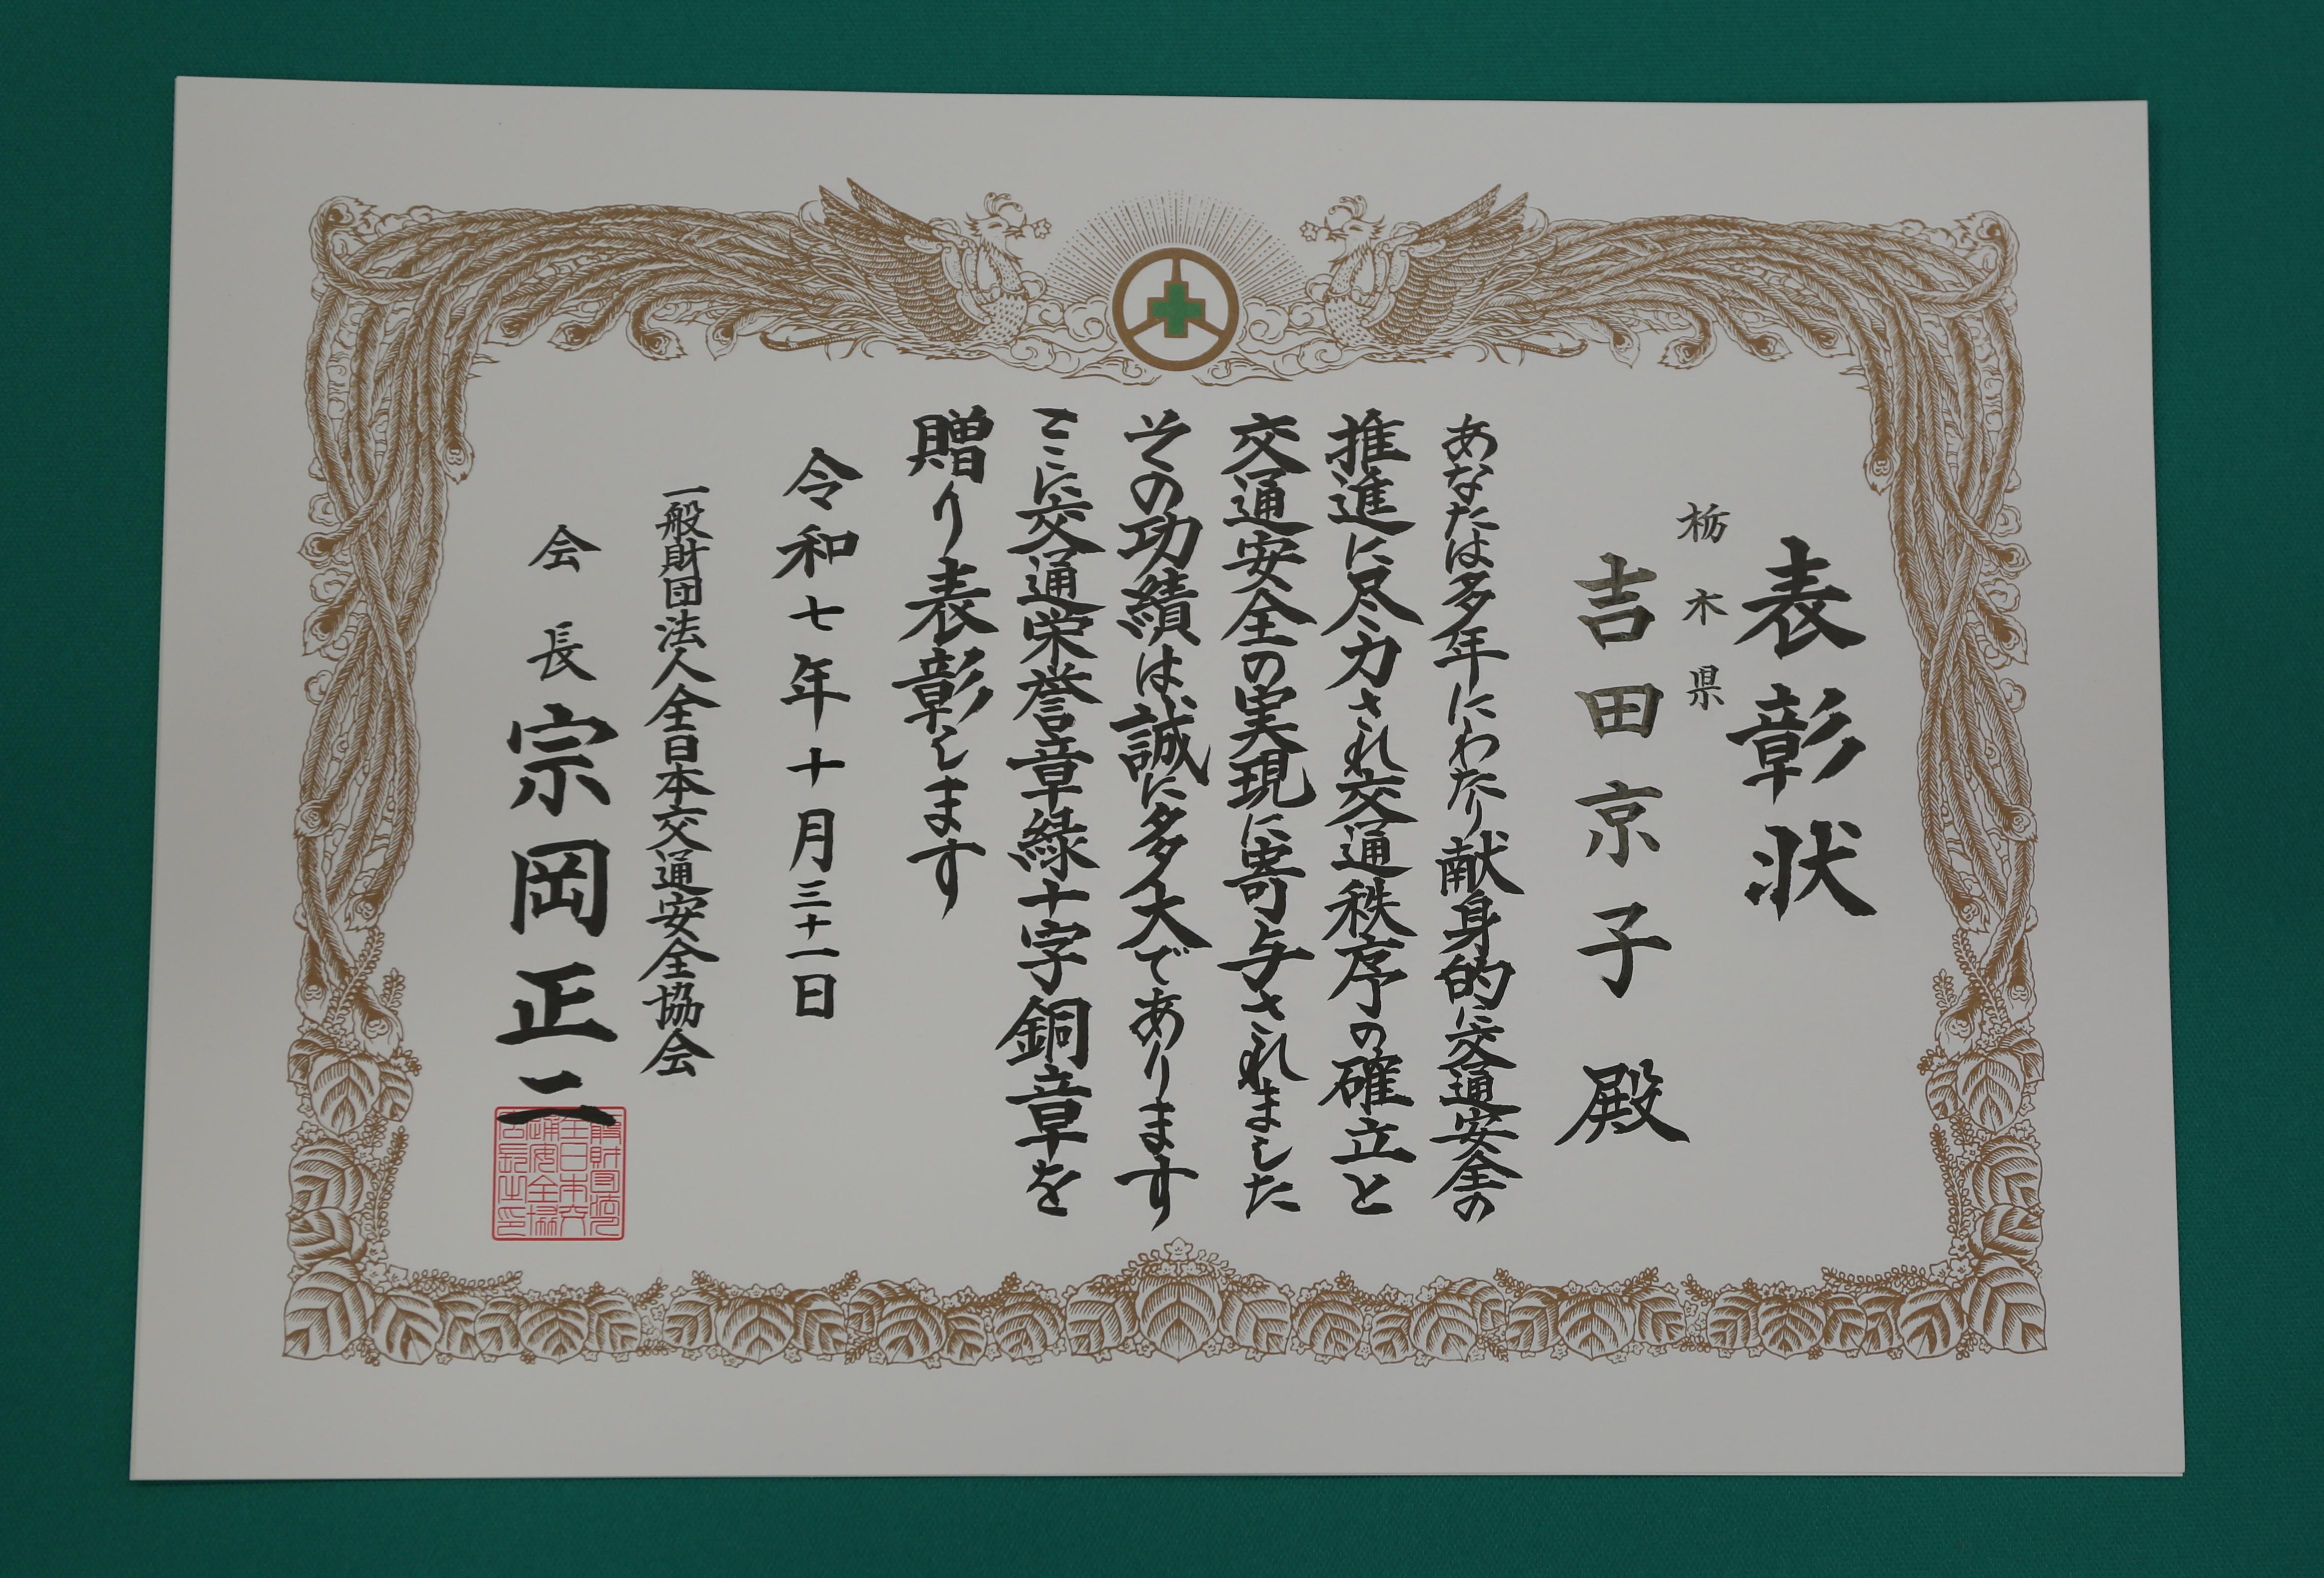 表彰状
栃木県
吉田京子殿
あなたは多年にわたり献身的に交通安全の
推進に尽力され交通秩序の確立と
交通安全の実現に寄与されました
その功績は誠に多大であります
ここに交通栄誉章緑十字銅章を
贈り表彰します
令和七年十月三十一日
一般財団法人全日本交通安全協会
会長宗岡正二